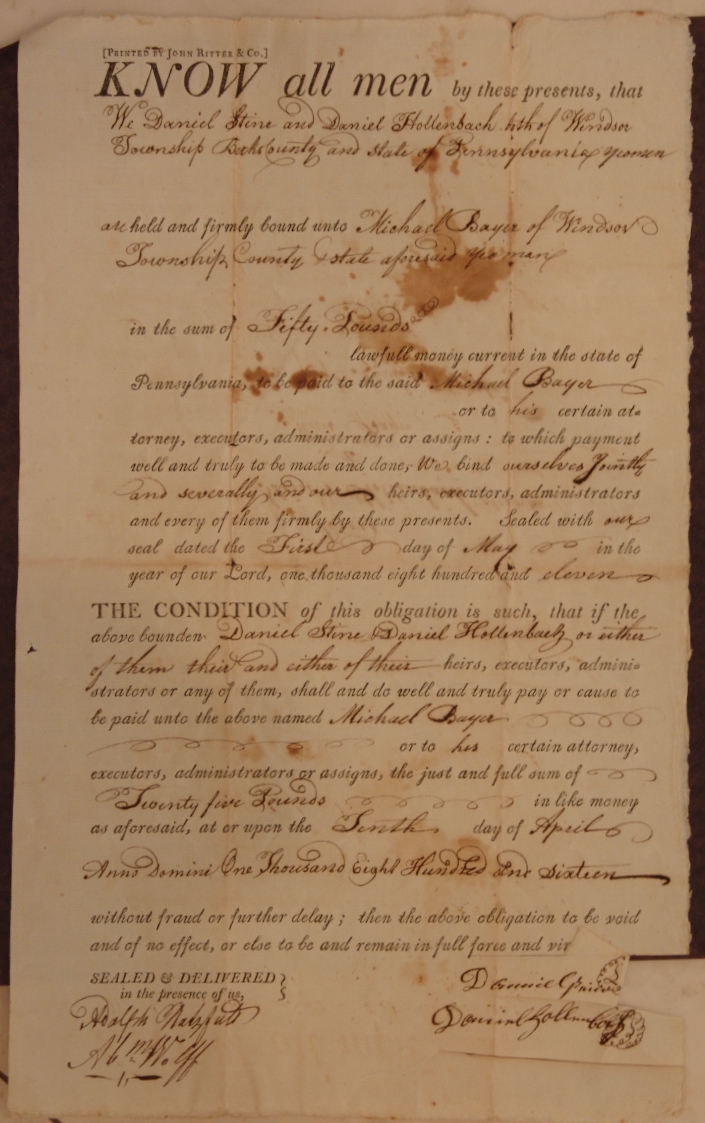 [PRINTED BY JOHN RITTER & CO.]
KNOW all men by these presents, that
We Daniel Stine and Daniel Hollenbach both of Windsor
Township Berks County and state of Pennsylvania yeomen
are held and firmly bound unto Michael Bayer of Windsor
Township County & state aforesaid yeoman
in the sum of Fifty Pounds
lawfull money current in the state of
Pennsylvania, to be paid to the said Michael Bayer
or to his certain at-
torney, executors, administrators or assigns: to which payment
well and truly to be made and done, We bind ourselves Jointly
and severally and our heirs, executors, administrators
and every of them firmly by these presents. Sealed with our
seal dated the First day of May in the
year of our Lord, one thousand eight hundred and eleven
THE CONDITION of this obligation is such, that if the
above bounden Daniel Stine & Daniel Hollenbach or either
of them their and either of their heirs, executors, admini-
strators or any of them, shall and do well and truly pay or cause to
be paid unto the above named Michael Bayer
or to his certain attorney,
executors, administrators or assigns, the just and full sum of
Twenty five Pounds in like money
as aforesaid, at or upon the Tenth day of April
Anno Domini One Thousand Eight Hundred and sixteen
without fraud or further delay; then the above obligation to be void
and of no effect, or else to be and remain in full force and vir
SEALED & DELIVERED
in the presence of us,
Daniel
Adolph
Daniel Hollenbach
Abm Wolff